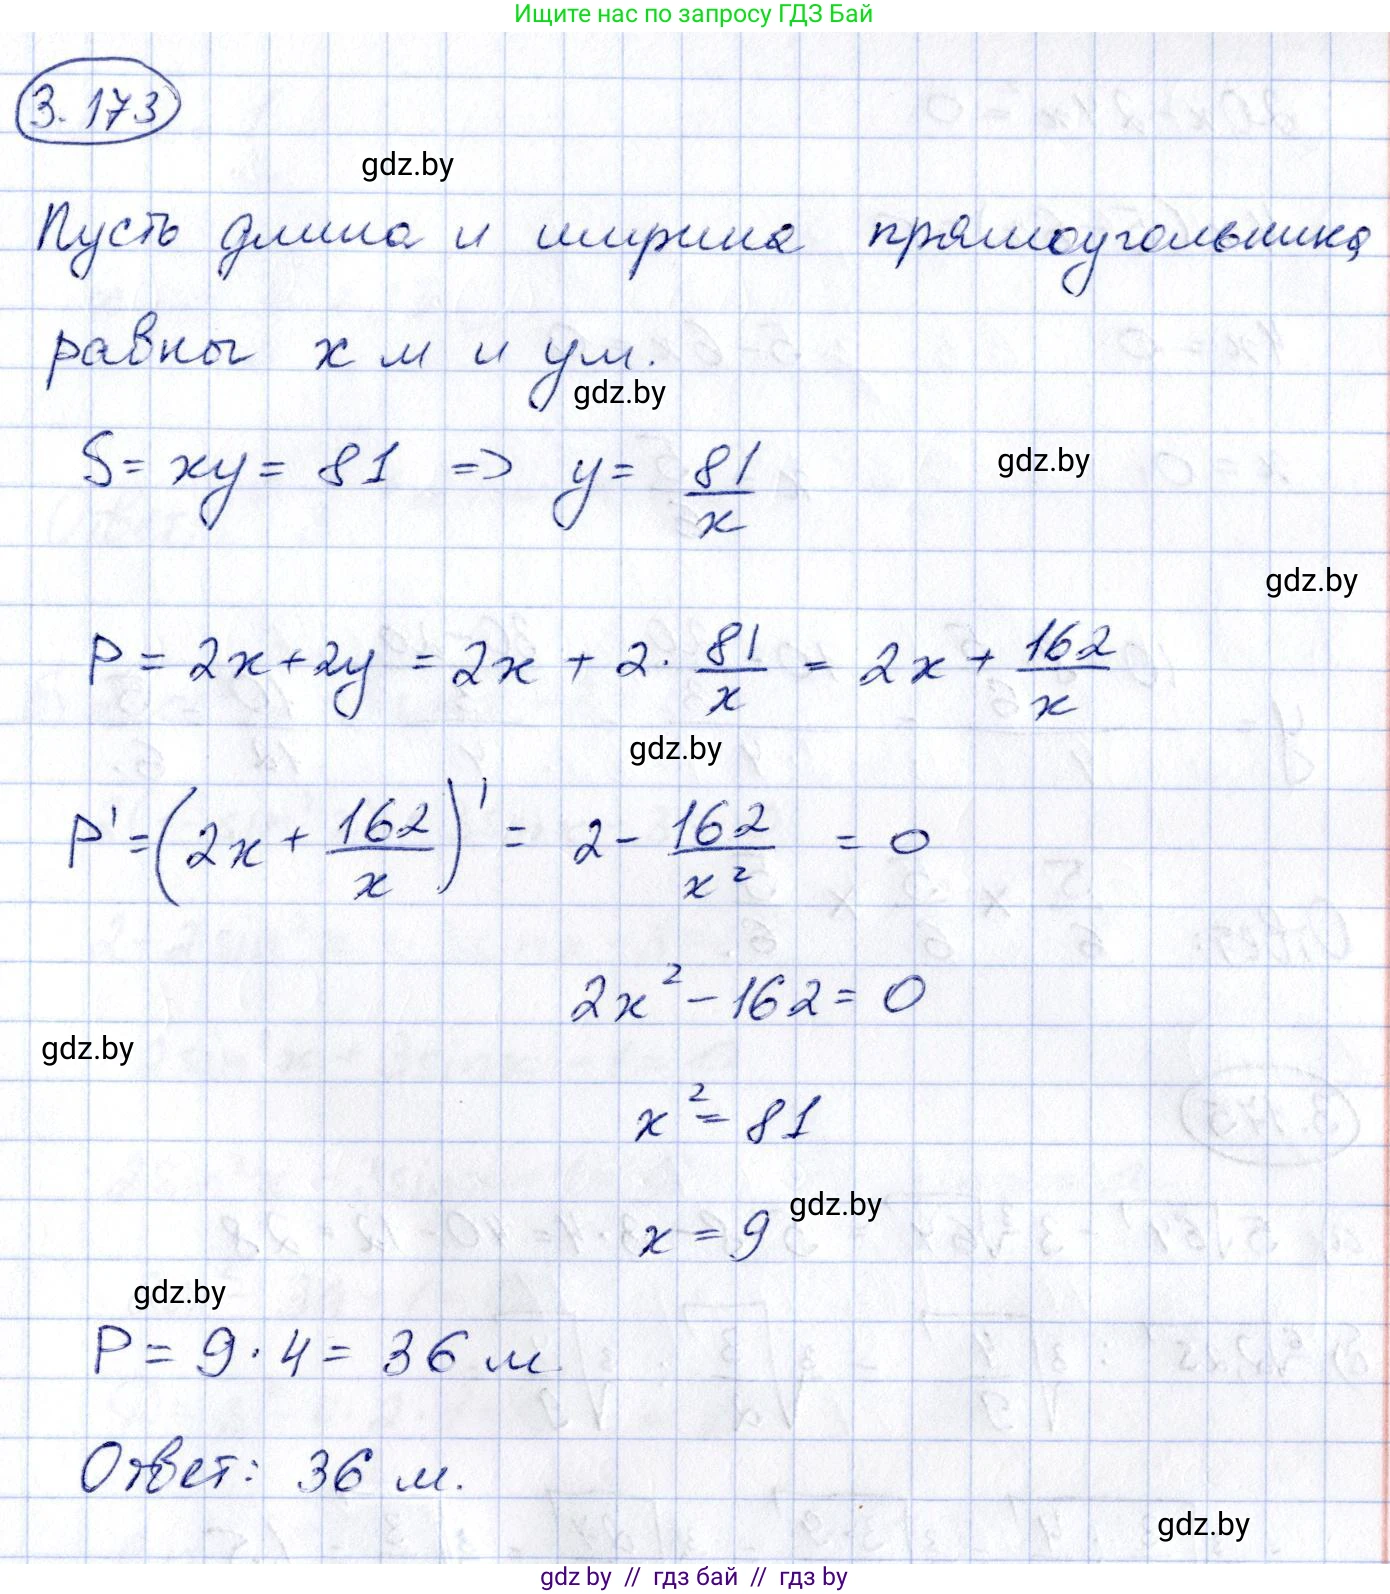 Ищите нас по запросу ГДЗ Бай
3.173
gdz.by
Пусть длина и ширина прямоугольника
равны x м и y м.
gdz.by
S = xy = 81 => y = 81/x
gdz.by
gdz.by
P = 2x + 2y = 2x + 2 · 81/x = 2x + 162/x
gdz.by
P' = (2x + 162/x)' = 2 - 162/x² = 0
2x² - 162 = 0
gdz.by
x² = 81
x = 9
gdz.by
gdz.by
P = 9 · 4 = 36 м
Ответ: 36 м.
gdz.by
gdz by // гдз бай // gdz by